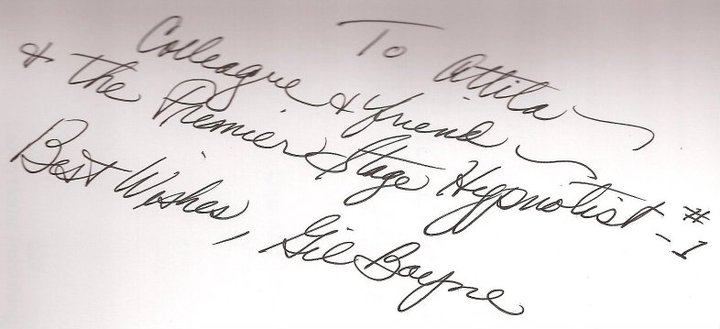 To Attila
Colleague & friend
& the Premier Stage Hypnotist - #1
Best Wishes, Gil Boyne